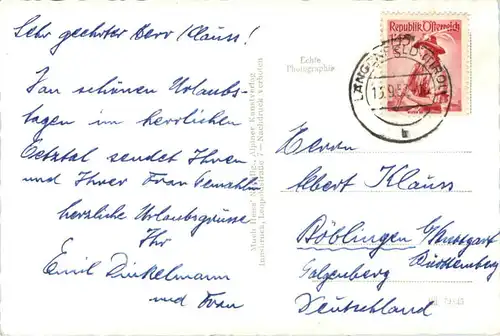 Sehr geehrter Herr Clauss!
Von schönen Urlaubs-
tagen im herrlichen
Oetztal sendet Ihnen
und Ihrer Frau Gemahlin
herzliche Urlaubsgrüsse
Ihr
Emil Dinkelmann
und Frau
Echte
Photographie
Innsbruck, Leopoldstraße 7 — Nachdruck verboten
Republik Österreich
LÄNGENFELD (TIROL)
13.9.5
b
Herrn
Albert Klauss
Böblingen b/Stuttgart
Galgenberg Württemberg
Deutschland